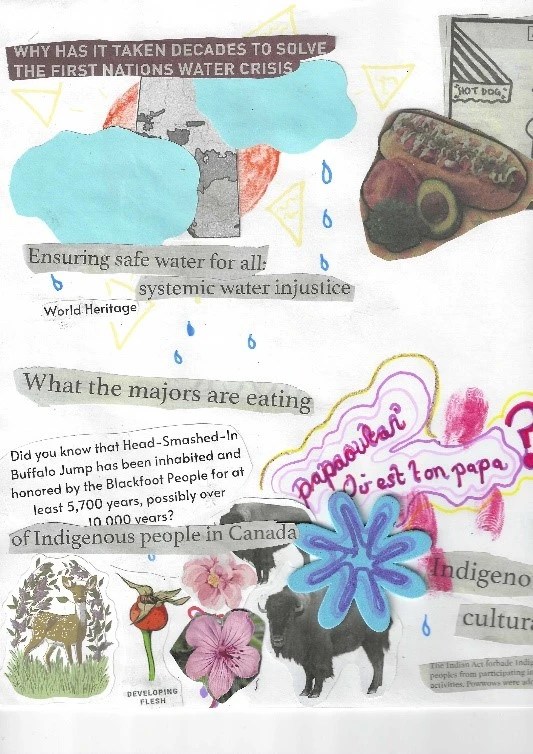 WHY HAS IT TAKEN DECADES TO SOLVE
THE FIRST NATIONS WATER CRISIS
HOT DOG
Ensuring safe water for all:
systemic water injustice
World Heritage
What the majors are eating
papaoutai
Où est ton papa ?
Did you know that Head-Smashed-In
Buffalo Jump has been inhabited and
honored by the Blackfoot People for at
least 5,700 years, possibly over
10 000 years?
of Indigenous people in Canada
Indigeno
cultura
DEVELOPING
FLESH
The Indian Act forbade Indig
peoples from participating in
activities. Powwows were add